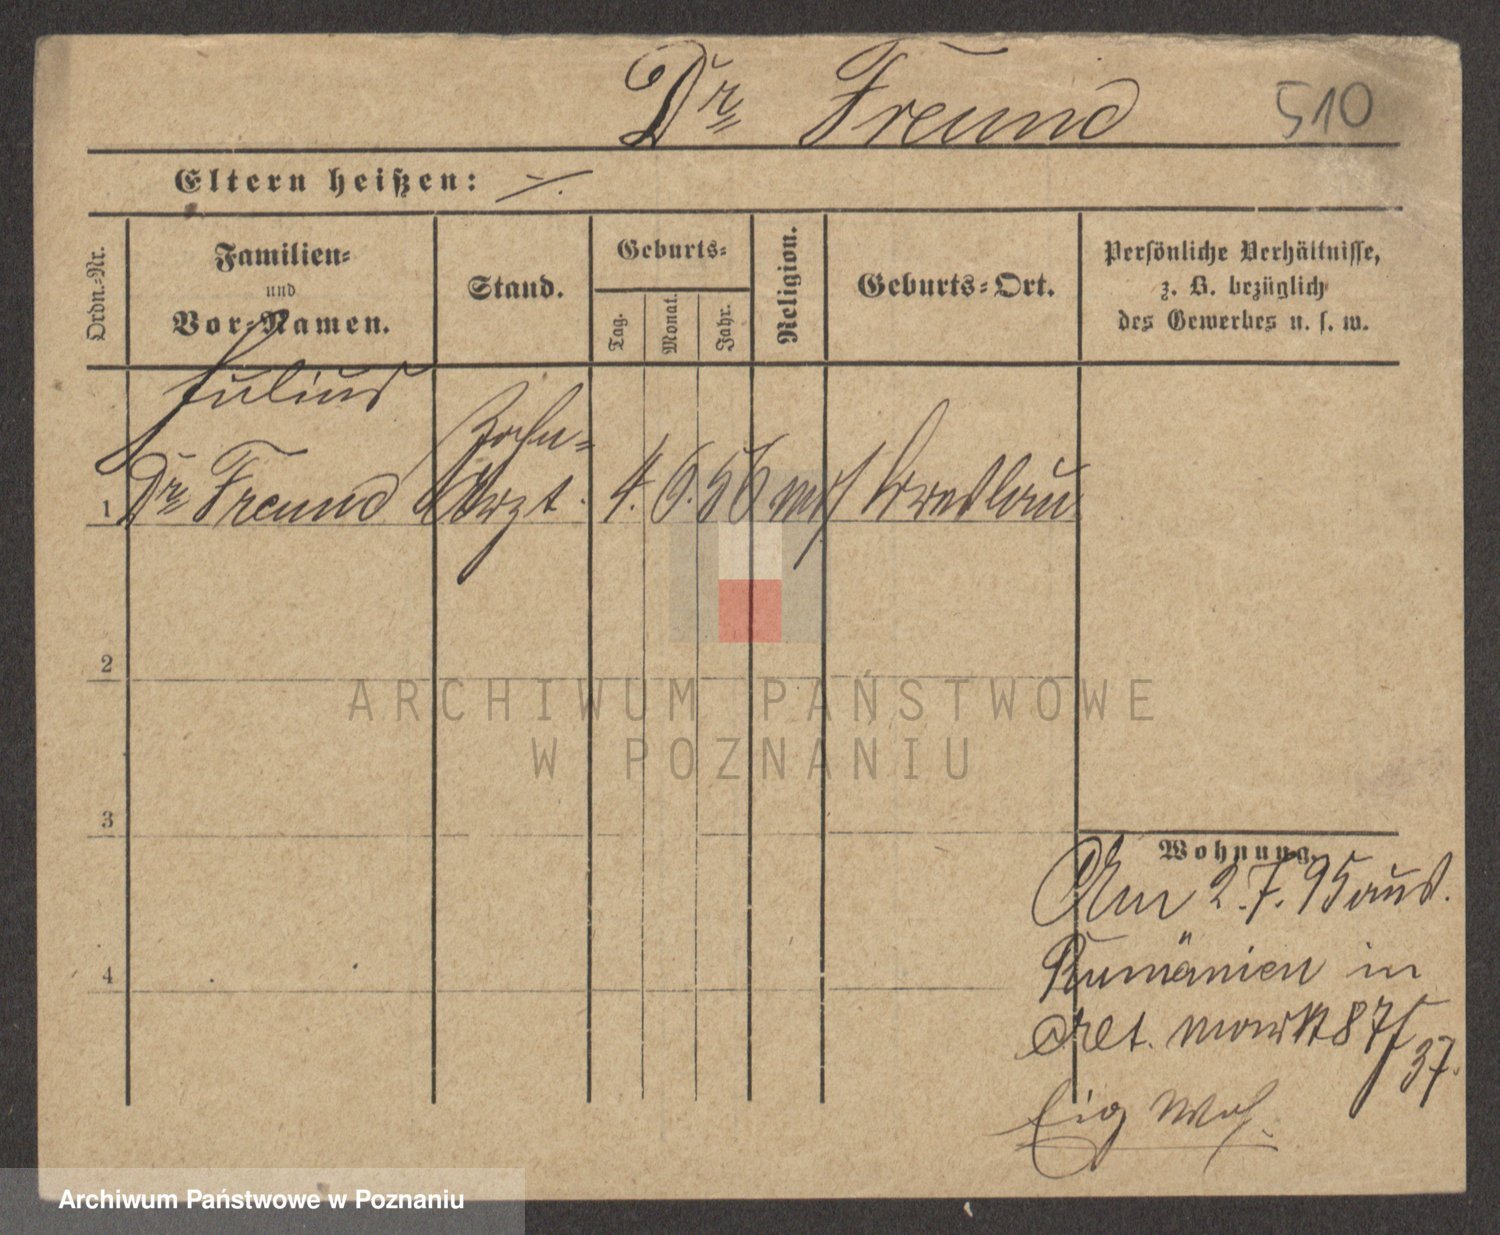 Dr Freund 510
Eltern heißen: ·/.
Ordn.-Nr.
Familien-
und
Vor-Namen.
Stand.
Geburts-
Tag.
Monat.
Jahr.
Religion.
Geburts-Ort.
Persönliche Verhältnisse,
z. B. bezüglich
des Gewerbes u. s. w.
Julius
Zahn-
1 Dr Freund Arzt. 4. 6. 56 mos Breslau
2
ARCHIWUM PAŃSTWOWE
W POZNANIU
3
Wohnung.
Am 2.7.95 aus
Rumänien in
4
Alt. markt 87/
37.
Eig Woh.
Archiwum Państwowe w Poznaniu